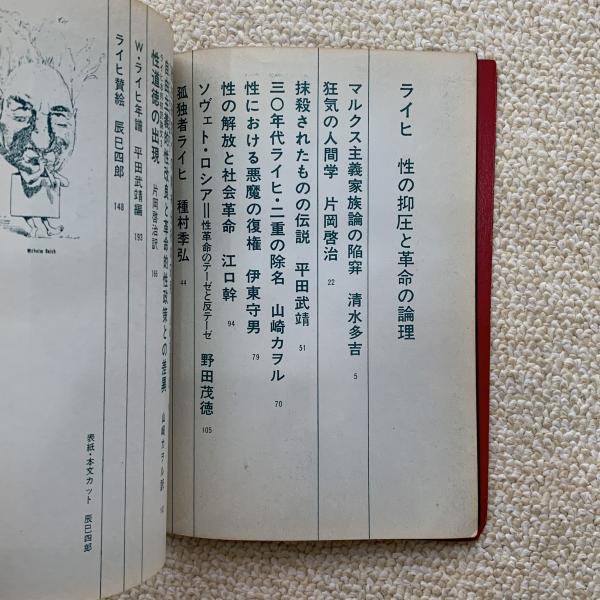 ライヒ 性の抑圧と革命の論理
マルクス主義家族論の陥穽 清水多吉 5
狂気の人間学 片岡啓治 22
抹殺されたものの伝説 平田武靖 51
三〇年代ライヒ・二重の除名 山崎カヲル 70
性における悪魔の復権 伊東守男 79
性の解放と社会革命 江口幹 94
ソヴェト・ロシア＝性革命のテーゼと反テーゼ 野田茂徳 105
孤独者ライヒ 種村季弘 44
自由主義的性改良と革命的性政策との差異 山崎カヲル訳
性道徳の出現 片岡啓治訳 166
W・ライヒ年譜 平田武靖編 193
ライヒ賛絵 辰巳四郎 148
表紙・本文カット 辰巳四郎
Wilhelm Reich